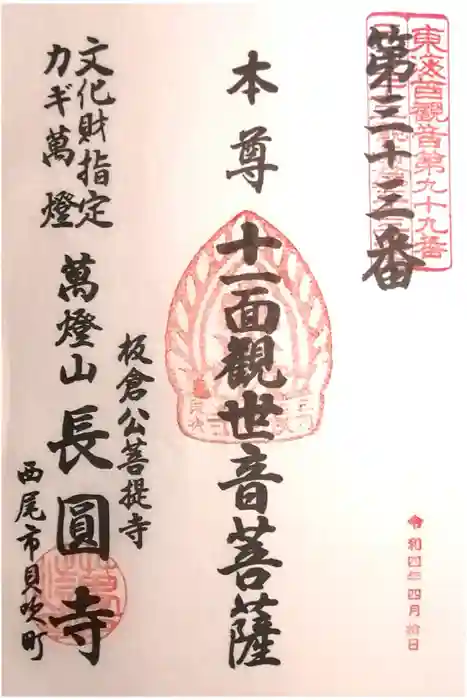 東海百觀音第九十九番
第三十三番
本尊 十一面観世音菩薩
令和四年四月拾日
文化財指定
カギ萬燈
板倉公菩提寺
萬燈山 長圓寺
西尾市貝吹町